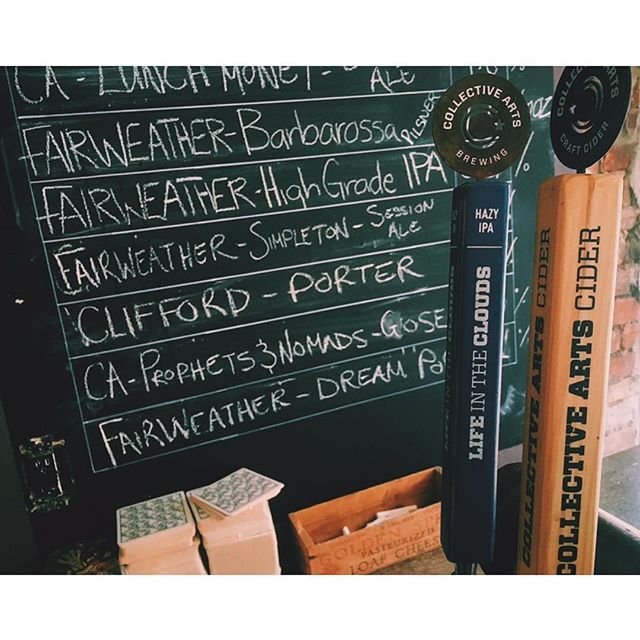 CA - LUNCH MONEY - ALE
FAIRWEATHER - Barbarossa PILSNER
FAIRWEATHER - High Grade IPA
FAIRWEATHER - SIMPLETON - SESSION ALE
CLIFFORD - PORTER
CA - PROPHETS & NOMADS - GOSE
FAIRWEATHER - DREAM
COLLECTIVE ARTS
BREWING
HAZY
IPA
LIFE IN THE CLOUDS
COLLECTIVE ARTS
CRAFT CIDER
COLLECTIVE ARTS CIDER
COLLECTIVE ARTS CIDER
GOLDEN
PASTEURIZED
LOAF CHEESE